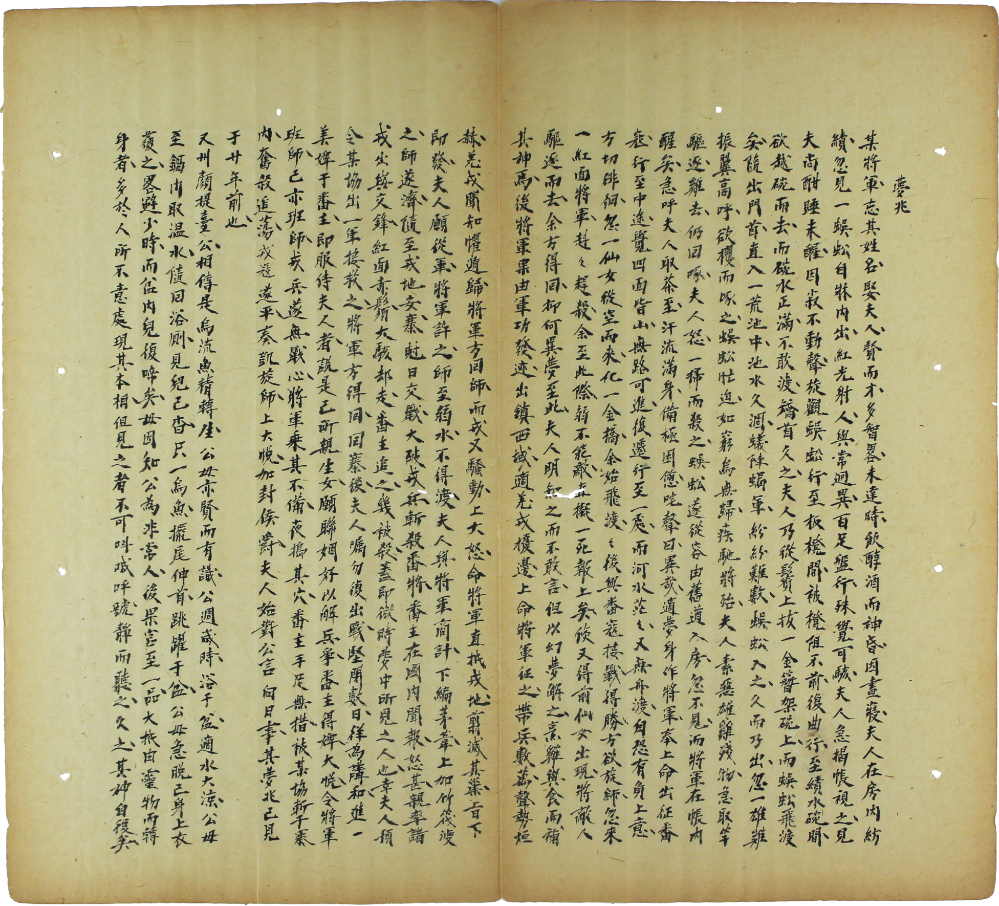 夢兆
某將軍忘其姓名娶夫人賢而才多智畧未達時飲醇酒而神昏因晝寢夫人在房內紡
績忽見一蜈蚣自牀內出紅光射人與常迥異百足盤行殊覺可駭夫人急揭帳視之見
夫尚酣睡未醒因叔不動聲旋觀蜈蚣行至板櫈間被櫈阻不前復曲行至績水硫間
欲越硫而去而硫水正滿不敢渡躊首久之夫人乃從鬢上拔一金簪架硫上而蜈蚣飛渡
矣隨出門首直入一荒池中池水久涸蟻陣蝸軍紛紛難數蜈蚣入之久而乃出忽一雄雞
振翼高呼欲攫而啄之蜈蚣忙迫如窮鳥無歸疾馳將殆夫人素惡雄雞殘物急取竿
驅逐雞去仍回啄夫人怒一掃而殺之蜈蚣遂從容由舊道入房忽不見而將軍在帳內
醒矣急呼夫人取茶至汗流滿身備極困憊咤聲曰異哉適夢身作將軍奉上命出征番
寇行至中途覺四面皆山無路可進復遶行至一處而河水茫々又無舟渡自恐有負上意
方切徘徊忽一仙女從空而來化一金橋余始飛渡々後與番寇接戰得勝方欲旋師忽來
一紅面將軍趕々趕殺余至此際弱不能敵直擬一死報上矣後又得前仙女出現將敵人
驅逐而去余方得回抑何異夢至此夫人明知之而不敢言但以幻夢解之烹雞與食而補
其神焉後將軍果由軍功發迹出鎮西域適羌戎擾邊上命將軍征之帶兵數萬聲勢烜
赫羌戎聞知懼遁歸將軍方回師而戎又騷動上大怒命將軍直抵戎地剪滅其巢旨下
即發夫人願從軍將軍許之師至弱水不得渡夫人與將軍商計下編茅葦上加竹筏渡
之師遂濟隨至戎地安寨尅日交戰大敗戎兵斬殺番將番主在國內聞報怒甚親率諸
戎出與交鋒紅面赤鬚大駭却走番主追之幾被殺蓋即嶽時夢中所見之人也幸夫人預
令某協出一軍接救之將軍方得同回寨後夫人囑勿復出戰堅閉數日佯為講和進一
美婢于番主即服侍夫人者說是己所親生女願聯姻好以解兵爭番主得婢大悅令將軍
班師己亦班師戎兵遂無戰心將軍乘其不備夜搗其穴番主手足無措被某協斬于寨
內奮殺追蕩戎寇遂平奏凱旋師上大悅加封侯爵夫人始對公言向日事其夢兆已見
于廿年前也
又州顏提臺公相傳是烏流魚精轉生公母亦賢而有識公週歲時浴于盆適水大涼公母
至鍋內取温水隨回浴厠見兒已杳只一烏魚擺尾伸首跳躍于盆公母急脫己身上衣
覆之畧避少時而盆內兒復啼矣母因知公為非常人後果宮至一品大抵由靈物而轉
身者多於人所不意處現其本相但見之者不可叫喊呼號靜而聽之久之其神自復矣